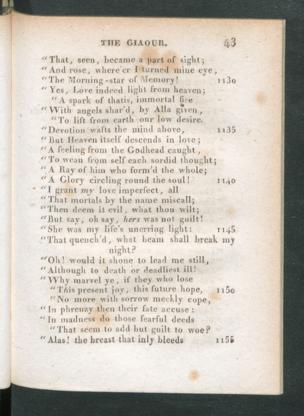 THE GIAOUR. 43
"That, seen, became a part of sight;
"And rose, where'er I turned mine eye,
"The Morning-star of Memory! 1130
"Yes, Love indeed light from heaven;
"A spark of thatis, immortal fire
"With angels shar'd, by Alla given,
"To lift from earth our low desire.
"Devotion wafts the mind above, 1135
"But Heaven itself descends in love;
"A feeling from the Godhead caught,
"To wean from self each sordid thought;
"A Ray of him who form'd the whole;
"A Glory circling round the soul! 1140
"I grant my love imperfect, all
"That mortals by the name miscall;
"Then deem it evil, what thou wilt;
"But say, oh say, hers was not guilt!
"She was my life's unerring light: 1145
"That quench'd, what beam shall break my
night?
"Oh! would it shone to lead me still,
"Although to death or deadliest ill!
"Why marvel ye, if they who lose
"This present joy, this future hope, 1150
"No more with sorrow meekly cope,
"In phrenzy then their fate accuse:
"In madness do those fearful deeds
"That seem to add but guilt to woe?
"Alas! the breast that inly bleeds 1155